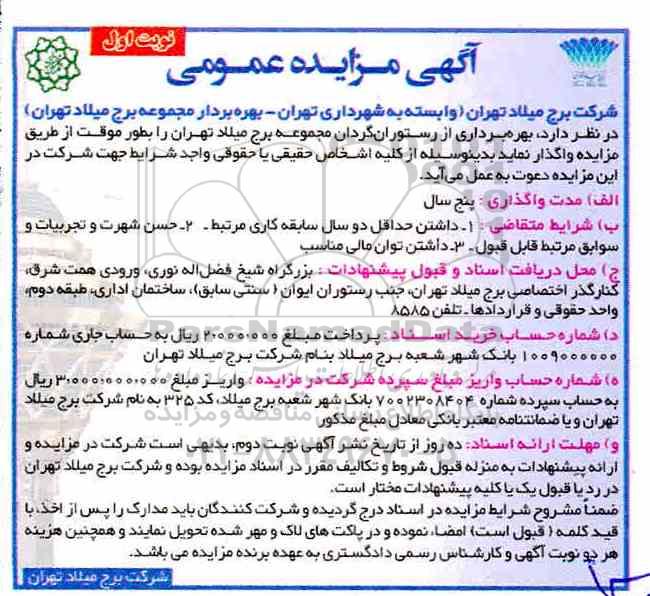 نوبت اول
آگهی مزایده عمومی
شرکت برج میلاد تهران (وابسته به شهرداری تهران - بهره بردار مجموعه برج میلاد تهران)
در نظر دارد، بهره‌برداری از رستوران‌گردان مجموعه برج میلاد تهران را بطور موقت از طریق
مزایده واگذار نماید بدینوسیله از کلیه اشخاص حقیقی یا حقوقی واجد شرایط جهت شرکت در
این مزایده دعوت به عمل می‌آید.
الف) مدت واگذاری : پنج سال
ب) شرایط متقاضی : ۱- داشتن حداقل دو سال سابقه کاری مرتبط - ۲- حسن شهرت و تجربیات و
سوابق مرتبط قابل قبول - ۳- داشتن توان مالی مناسب
ج) محل دریافت اسناد و قبول پیشنهادات : بزرگراه شیخ فضل‌اله نوری، ورودی همت شرق،
کنارگذر اختصاصی برج میلاد تهران، جنب رستوران ایوان ( سنتی سابق)، ساختمان اداری، طبقه دوم،
واحد حقوقی و قراردادها - تلفن ۸۵۸۵
د) شماره حساب خرید اسناد : پرداخت مبلغ ۲،۰۰۰،۰۰۰ ریال به حساب جاری شماره
۱۰۰۹۰۰۰۰۰۰ بانک شهر شعبه برج میلاد بنام شرکت برج میلاد تهران
ه) شماره حساب واریز مبلغ سپرده شرکت در مزایده : واریز مبلغ ۳،۰۰۰،۰۰۰،۰۰۰ ریال
به حساب سپرده شماره ۷۰۰۲۳۰۸۴۰۴ بانک شهر شعبه برج میلاد، کد ۳۲۵ به نام شرکت برج میلاد
تهران و یا ضمانتنامه معتبر بانکی معادل مبلغ مذکور
و) مهلت ارائه اسناد: ده روز از تاریخ نشر آگهی نوبت دوم، بدیهی است شرکت در مزایده و
ارائه پیشنهادات به منزله قبول شروط و تکالیف مقرر در اسناد مزایده بوده و شرکت برج میلاد تهران
در رد یا قبول یک یا کلیه پیشنهادات مختار است.
ضمناً مشروح شرایط مزایده در اسناد درج گردیده و شرکت کنندگان باید مدارک را پس از اخذ، با
قید کلمه ( قبول است) امضاء نموده و در پاکت های لاک و مهر شده تحویل نمایند و همچنین هزینه
هر دو نوبت آگهی و کارشناس رسمی دادگستری به عهده برنده مزایده می باشد.
شرکت برج میلاد تهران
ParsNamadData